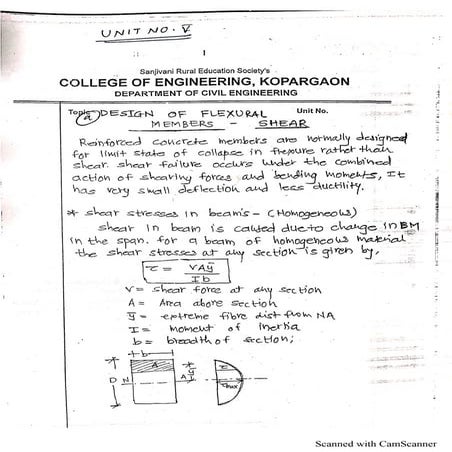 UNIT NO. V
1
Sanjivani Rural Education Society's
COLLEGE OF ENGINEERING, KOPARGAON
DEPARTMENT OF CIVIL ENGINEERING
Topic (a) DESIGN OF FLEXURAL Unit No.
MEMBERS - SHEAR
Reinforced concrete members are normally designed
for limit state of collapse in flexure rather than
shear. shear failure occurs under the combined
action of shearing forces and bending moments, It
has very small deflection and less ductility.
* shear stresses in beams - (Homogeneous)
shear in beam is caused due to change in BM
in the span. for a beam of homogeneous material
the shear stresses at any section is given by,
τ = VAȳ / Ib
V = shear force at any section
A = Area above section
ȳ = extreme fibre dist from NA
I = moment of inertia
b = breadth of section;
b
A
D N A ȳ
τ
τmax
Scanned with CamScanner